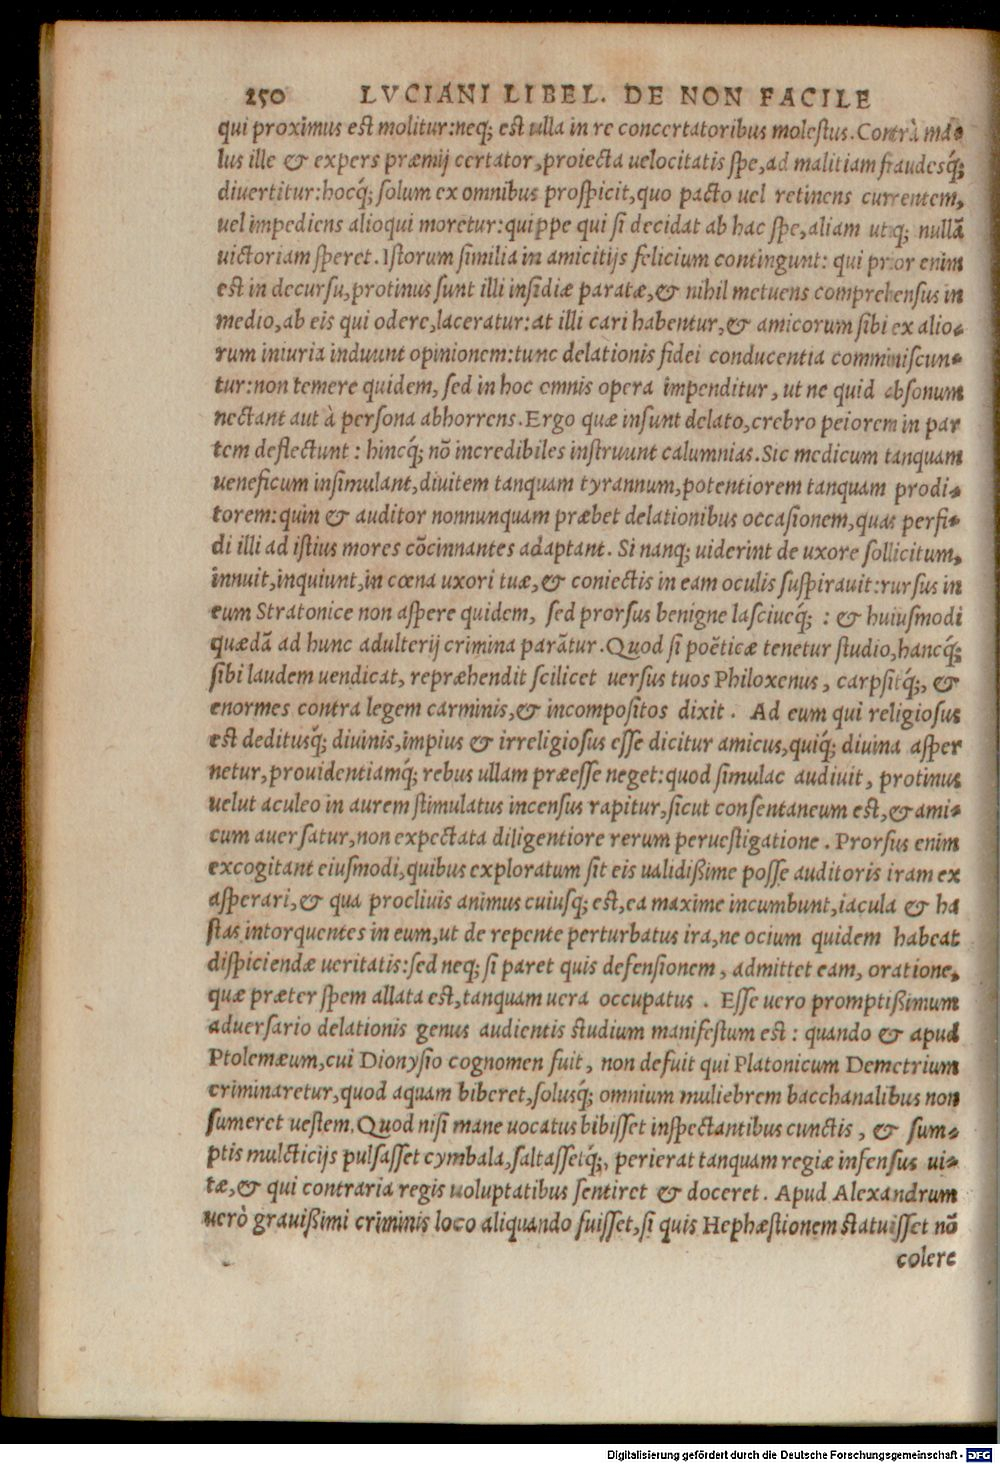 250 LVCIANI LIBEL. DE NON FACILE
qui proximus est molitur:neq; est ulla in re concertatoribus molestus. Contrà ma⸗
lus ille & expers præmij certator, proiecta uelocitatis spe, ad malitiam fraudesq́;
diuertitur:hocq́; solum ex omnibus prospicit, quo pacto uel retinens currentem,
uel impediens alioqui moretur: quippe qui si decidat ab hac spe, aliam utiq; nullã
uictoriam speret. Istorum similia in amicitijs felicium contingunt: qui prior enim
est in decursu, protinus sunt illi insidiæ paratæ, & nihil metuens comprehensus in
medio, ab eis qui odere, laceratur: at illi cari habentur, & amicorum sibi ex alio⸗
rum iniuria induunt opinionem: tunc delationis fidei conducentia comminiscun⸗
tur: non temere quidem, sed in hoc omnis opera impenditur, ut ne quid absonum
nectant aut à persona abhorrens. Ergo quæ insunt delato, crebro peiorem in par
tem deflectunt : hincq́; nõ incredibiles instruunt calumnias. Sic medicum tanquam
ueneficum insimulant, diuitem tanquam tyrannum, potentiorem tanquam prodi⸗
torem: quin & auditor nonnunquam præbet delationibus occasionem, quas perfi⸗
di illi ad istius mores cõcinnantes adaptant. Si nanq; uiderint de uxore sollicitum,
innuit, inquiunt, in cœna uxori tuæ, & coniectis in eam oculis suspirauit: rursus in
eum Stratonice non aspere quidem, sed prorsus benigne lasciueq́; : & huiusmodi
quædã ad hunc adulterij crimina parãtur. Quod si poëticæ tenetur studio, hancq́;
sibi laudem uendicat, repræhendit scilicet uersus tuos Philoxenus, carpsitq́;, &
enormes contra legem carminis, & incompositos dixit. Ad eum qui religiosus
est deditusq́; diuinis, impius & irreligiosus esse dicitur amicus, quiq́; diuina asper
netur, prouidentiamq́; rebus ullam præesse neget: quod simulac audiuit, protinus
uelut aculeo in aurem stimulatus incensus rapitur, sicut consentaneum est, & ami⸗
cum auersatur, non expectata diligentiore rerum peruestigatione. Prorsus enim
excogitant eiusmodi, quibus exploratum sit eis ualidißime posse auditoris iram ex
asperari, & qua procliuis animus cuiusq; est, ea maxime incumbunt, iacula & ha
stas intorquentes in eum, ut de repente perturbatus ira, ne ocium quidem habeat
dispiciendæ ueritatis: sed neq; si paret quis defensionem, admittet eam, oratione,
quæ præter spem allata est, tanquam uera occupatus . Esse uero promptißimum
aduersario delationis genus audientis studium manifestum est : quando & apud
Ptolemæum, cui Dionysio cognomen fuit, non defuit qui Platonicum Demetrium
criminaretur, quod aquam biberet, solusq́; omnium muliebrem bacchanalibus non
sumeret uestem. Quod nisi mane uocatus bibisset inspectantibus cunctis, & sum⸗
ptis multicijs pulsasset cymbala, saltassetq́;, perierat tanquam regiæ infensus ui⸗
tæ, & qui contraria regis uoluptatibus sentiret & doceret. Apud Alexandrum
uerò grauißimi criminis loco aliquando fuisset, si quis Hephæstionem statuisset nõ
colere
Digitalisierung gefördert durch die Deutsche Forschungsgemeinschaft - DFG